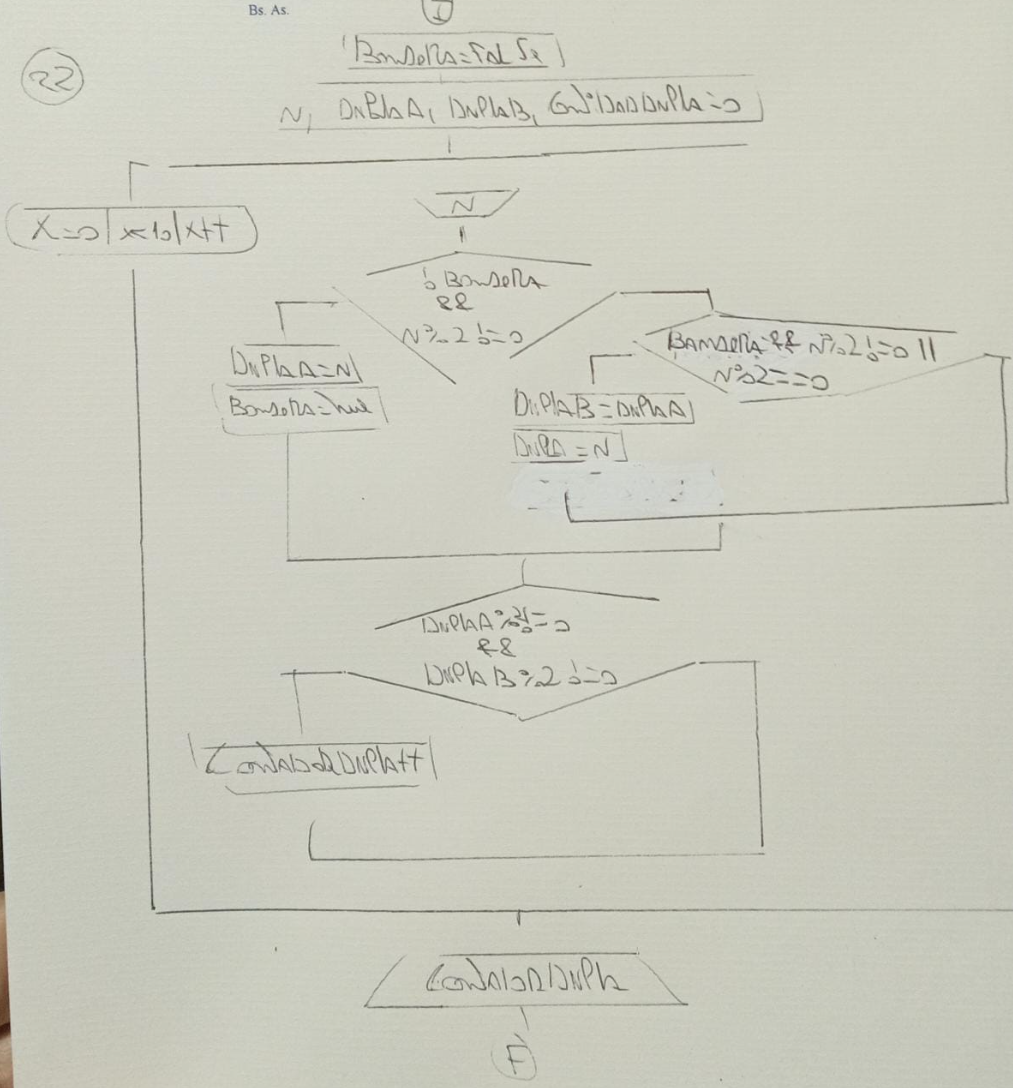 Bs. As.
I
22
Bandera=False
N, DuplaA, DuplaB, =0
X=0|x<10|x++
N
! Bandera
&&
N%2 !=0
Bandera && N%2 !=0 ||
N%2==0
DuplaA=N
Bandera=true
DuplaB=DuplaA
=N
DuplaA%2!=0
&&
DuplaB%2 !=0
ContadorDupla++
ContadorDupla
F